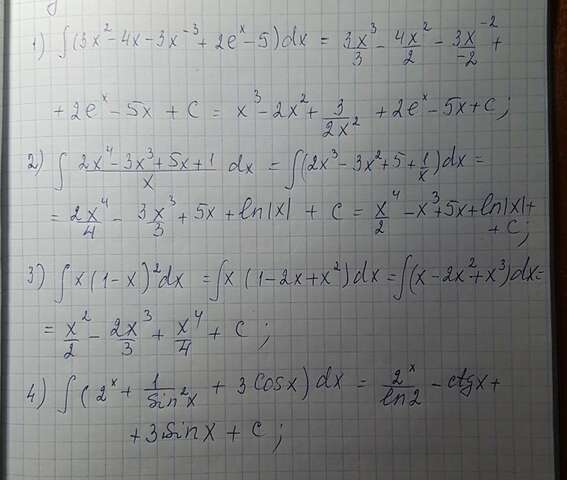 1) ∫(3x² - 4x - 3x⁻³ + 2eˣ - 5)dx = 3x³/3 - 4x²/2 - 3x⁻²/-2 +
+ 2eˣ - 5x + C = x³ - 2x² + 3/2x² + 2eˣ - 5x + C;
2) ∫ (2x⁴ - 3x³ + 5x + 1)/x dx = ∫(2x³ - 3x² + 5 + 1/x)dx =
= 2x⁴/4 - 3x³/3 + 5x + ln|x| + C = x⁴/2 - x³ + 5x + ln|x| +
+ C;
3) ∫x(1-x)²dx = ∫x(1-2x+x²)dx = ∫(x-2x²+x³)dx =
= x²/2 - 2x³/3 + x⁴/4 + C;
4) ∫(2ˣ + 1/sin²x + 3cosx)dx = 2ˣ/ln2 - ctgx +
+ 3sinx + C;